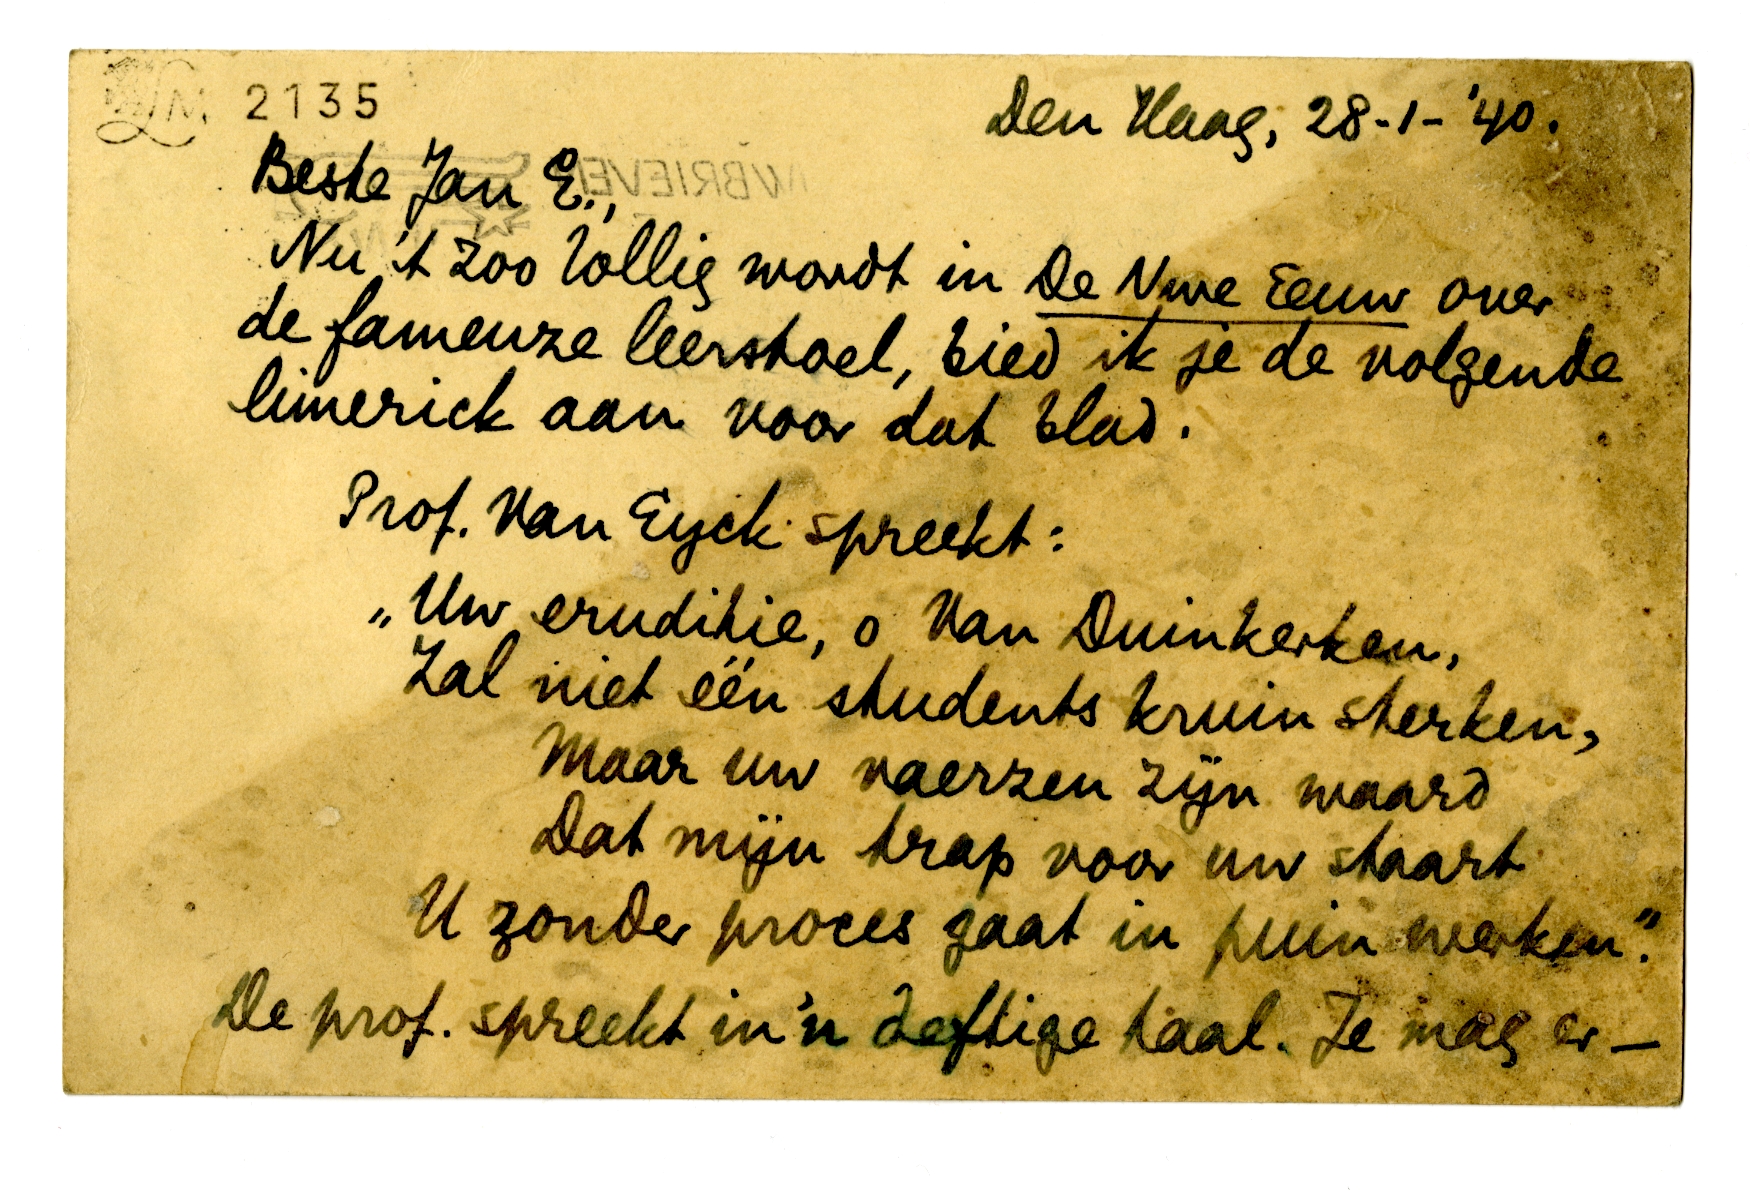 LM 2135
Den Haag, 28-1-'40.
Beste Jan E.,
Nu 't zoo lollig wordt in De Nwe Eeuw over
de fameuze leerstoel, bied ik je de volgende
limerick aan voor dat blad.
Prof. Van Eyck spreekt:
„Uw eruditie, o Van Duinkerken,
Zal niet één students kruin sterken,
Maar uw vaerzen zijn waard
Dat mijn trap voor uw staart
U zonder proces gaat in puin werken”.
De prof. spreekt in 'n deftige taal. Je mag er —